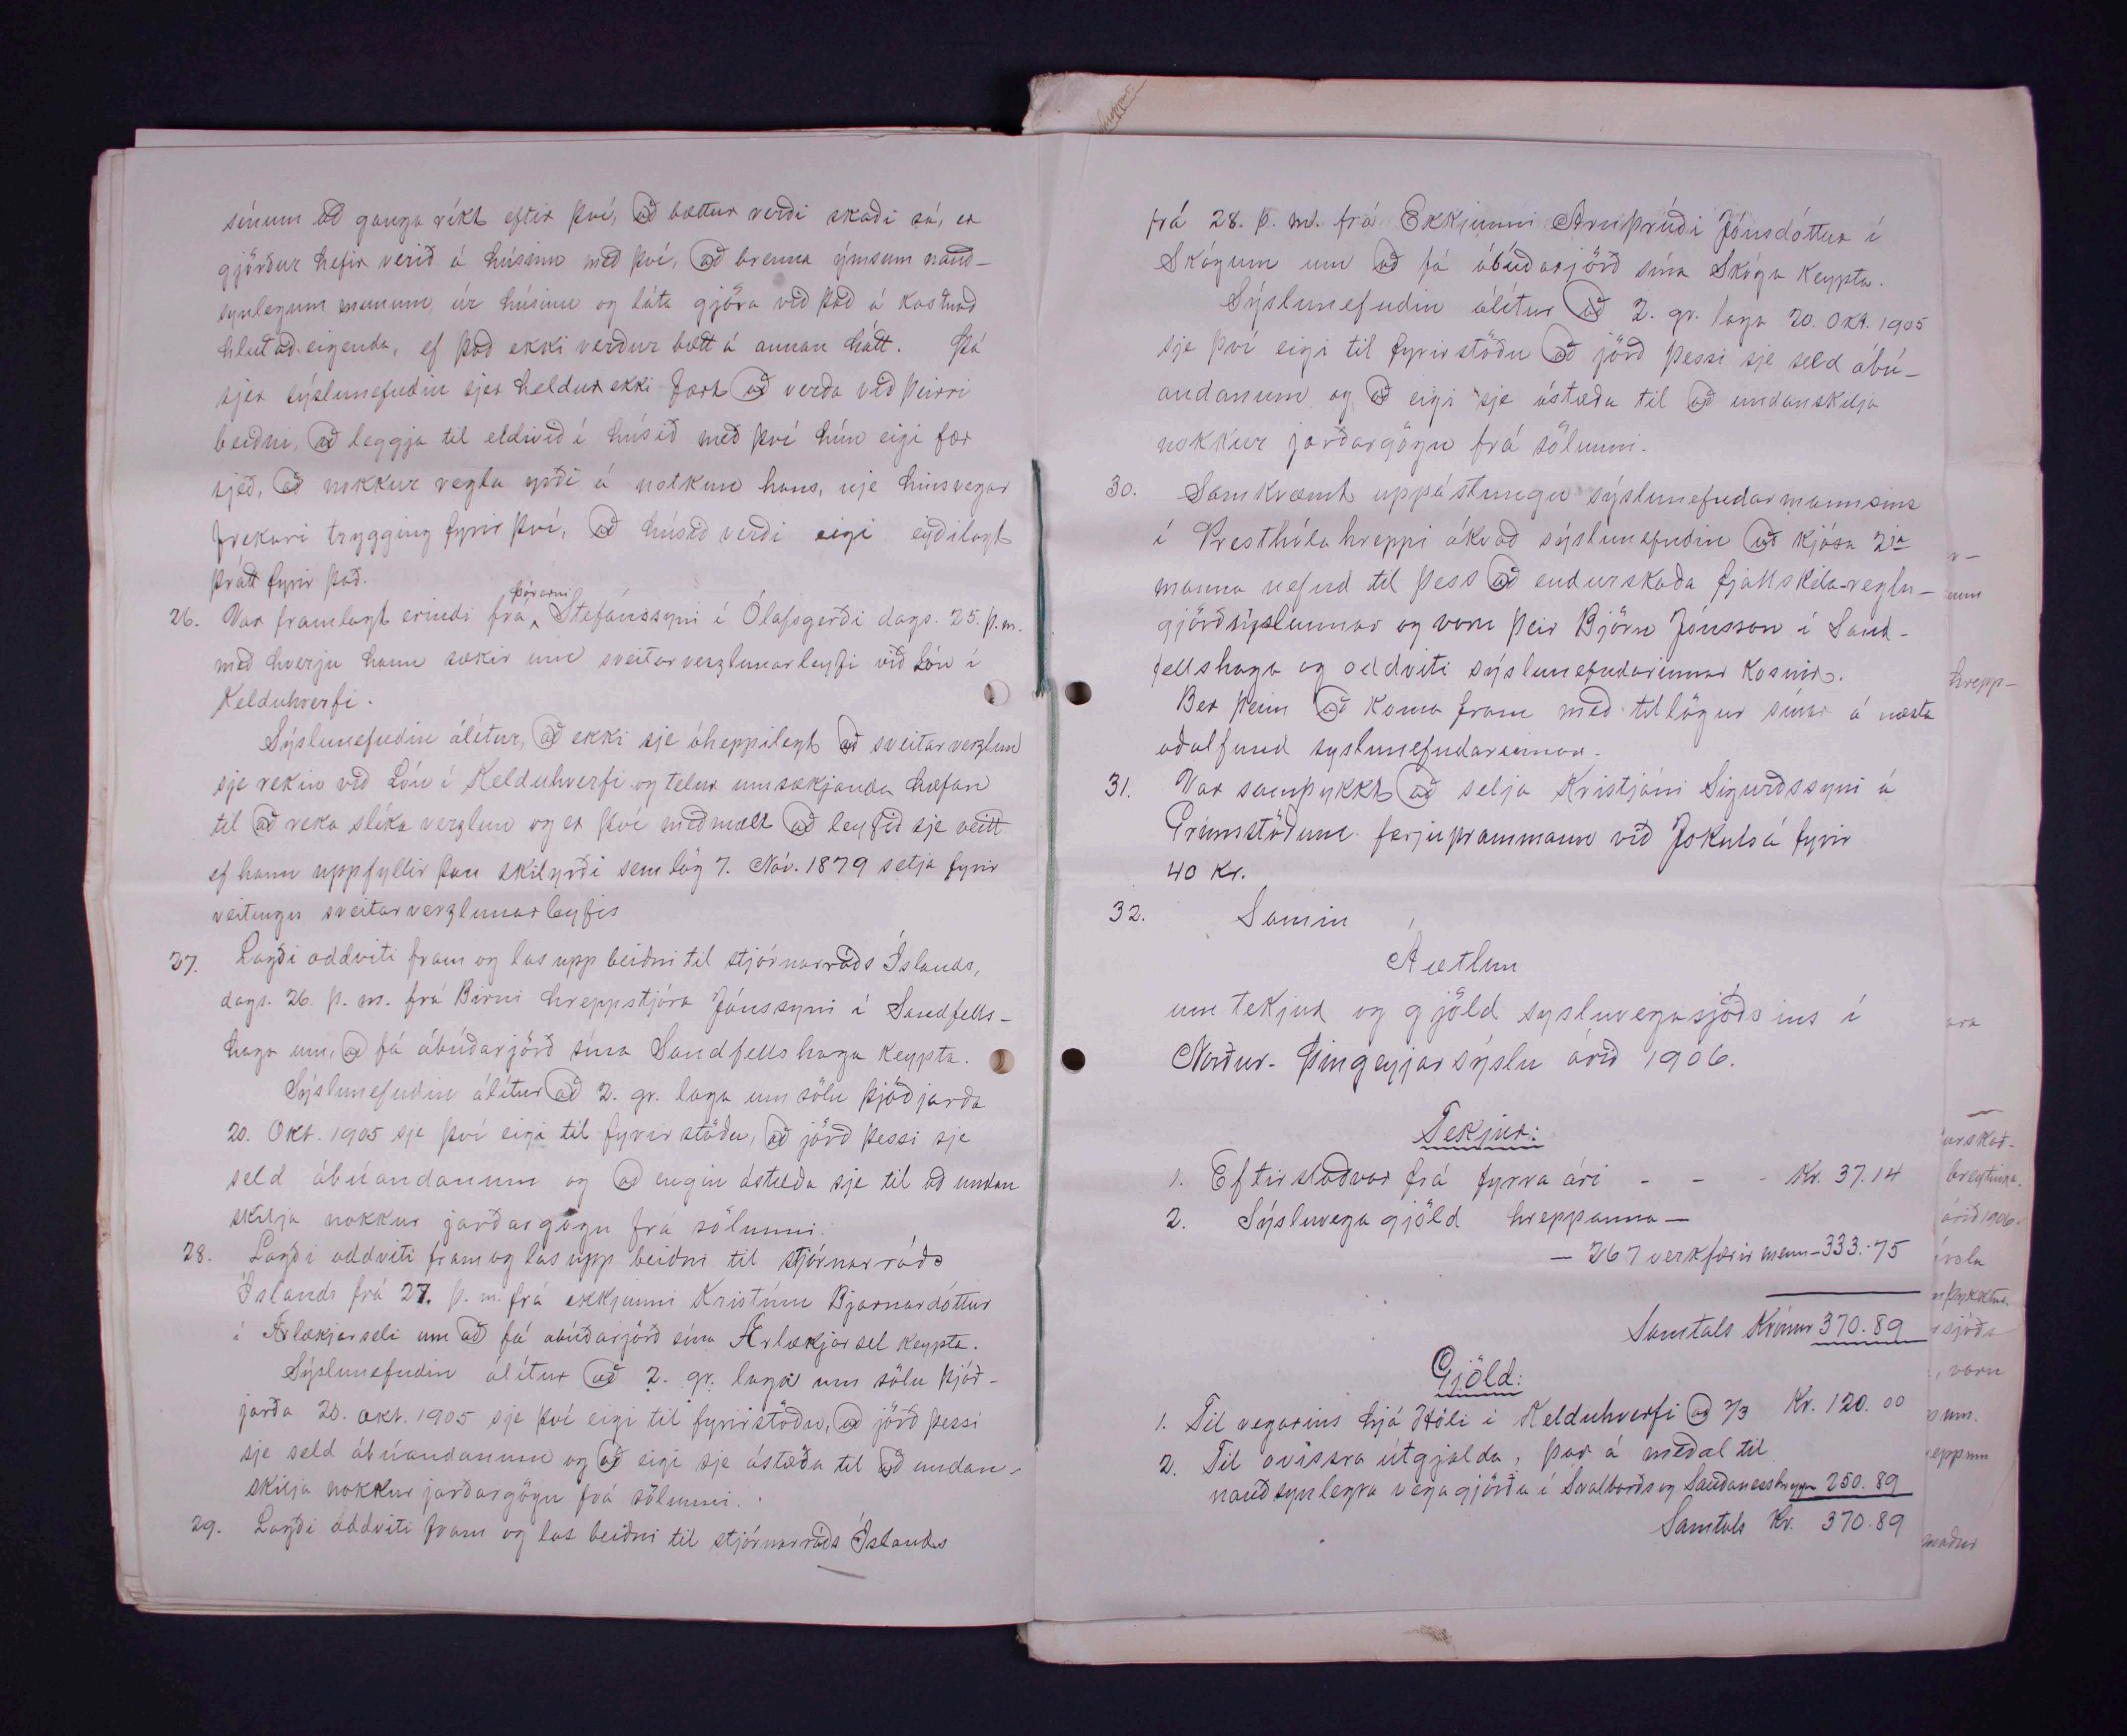 sínum að ganga ríkt eftir því, að bættur verði skaði sá, er
gjörður hefir verið á húsinu með því, að brenna ýmsum nauð-
synlegum munum úr húsinu og láta gjöra við það á kostnað
hlutaðeigenda, ef það ekki verður bætt á annan hátt. Þá
sjer sýslunefndin sjer heldur ekki fært að verða við þeirri
beiðni, að leggja til eldivið í húsið með því hún eigi fær
sjeð, að nokkur regla yrði á notkun hans, nje hinsvegar
frekari trygging fyrir því, að húsið verði eigi eyðilagt
þrátt fyrir það.
26. Var framlagt erindi frá Þórarni Stefánssyni í Ólafsgerði dags. 25. þ.m.
með hverju hann sækir um sveitarverzlunarleyfi við Lón í
Kelduhverfi.
Sýslunefndin álítur, að ekki sje óheppilegt að sveitarverzlun
sje rekin við Lón í Kelduhverfi og telur umsækjanda hæfan
til að reka slíka verzlun og er því meðmælt að leyfið sje veitt
ef hann uppfyllir þau skilyrði sem lög 7. Nóv. 1879 setja fyrir
veitingu sveitarverzlunarleyfis
27. Lagði oddviti fram og las upp beiðni til stjórnarráðs Íslands,
dags. 26. þ. m. frá Birni hreppstjóra Jónssyni í Sandfells-
haga um, að fá ábúðarjörð sína Sandfellshaga keypta.
Sýslunefndin álítur að 2. gr. laga um sölu þjóðjarða
20. Okt. 1905 sje því eigi til fyrirstöðu, að jörð þessi sje
seld ábúandanum og að engin ástæða sje til að undan
skilja nokkur jarðargögn frá sölunni.
28. Lagði oddviti fram og las upp beiðni til stjórnarráðs
Íslands frá 27. þ. m. frá ekkjunni Kristínu Bjarnardóttur
í Ærlækjarseli um að fá ábúðarjörð sína Ærlækjarsel keypta.
Sýslunefndin álítur að 2. gr. laga um sölu þjóð-
jarða 20. okt. 1905 sje því eigi til fyrirstöðu, að jörð þessi
sje seld ábúandanum og að eigi sje ástæða til að undan-
skilja nokkur jarðargögn frá sölunni.
29. Lagði oddviti fram og las beiðni til stjórnarráðs Íslands
frá 28. þ. m. frá Ekkjunni Arnþrúði Jónsdóttur í
Skógum um að fá ábúðarjörð sína Skóga keypta.
Sýslunefndin álítur að 2. gr. laga 20. Okt. 1905
sje því eigi til fyrirstöðu að jörð þessi sje seld ábú-
andanum og að eigi sje ástæða til að undanskilja
nokkur jarðargögn frá sölunni.
30. Samkvæmt uppástungu sýslunefndarmannsins
í Presthólahreppi ákvað sýslunefndin að kjósa 2ja
manna nefnd til þess að endurskoða fjallskila-reglu-
gjörð sýslunnar og voru þeir Björn Jónsson í Sand-
fellshaga og oddviti sýslunefndarinnar kosnir.
Ber þeim að koma fram með tillögur sínar á næsta
aðalfund syslunefndarinnar.
31. Var samþykkt að selja Kristjáni Sigurðssyni á
Grímstöðum ferjuprammann við Jökulsá fyrir
40 Kr.
32. Samin
Áætlun
um tekjur og gjöld sysluvegasjóðsins í
Norður-Þingeyjarsýslu árið 1906.
Tekjur:
1. Eftirstöðvar frá fyrra ári - - - Kr. 37.14
2. Sýsluvegagjöld hreppanna —
— 267 verkfærir menn - 333.75
Samtals Krónur 370.89
Gjöld:
1. Til vegarins hjá Hóli í Kelduhverfi að 2/3 Kr. 120.00
2. Til óvissra útgjalda, þar á meðal til
nauðsynlegra vegagjörða í Svalbarðs og Sauðaneshreppi 250.89
Samtals Kr. 370.89
hrepp-
árið 1906.